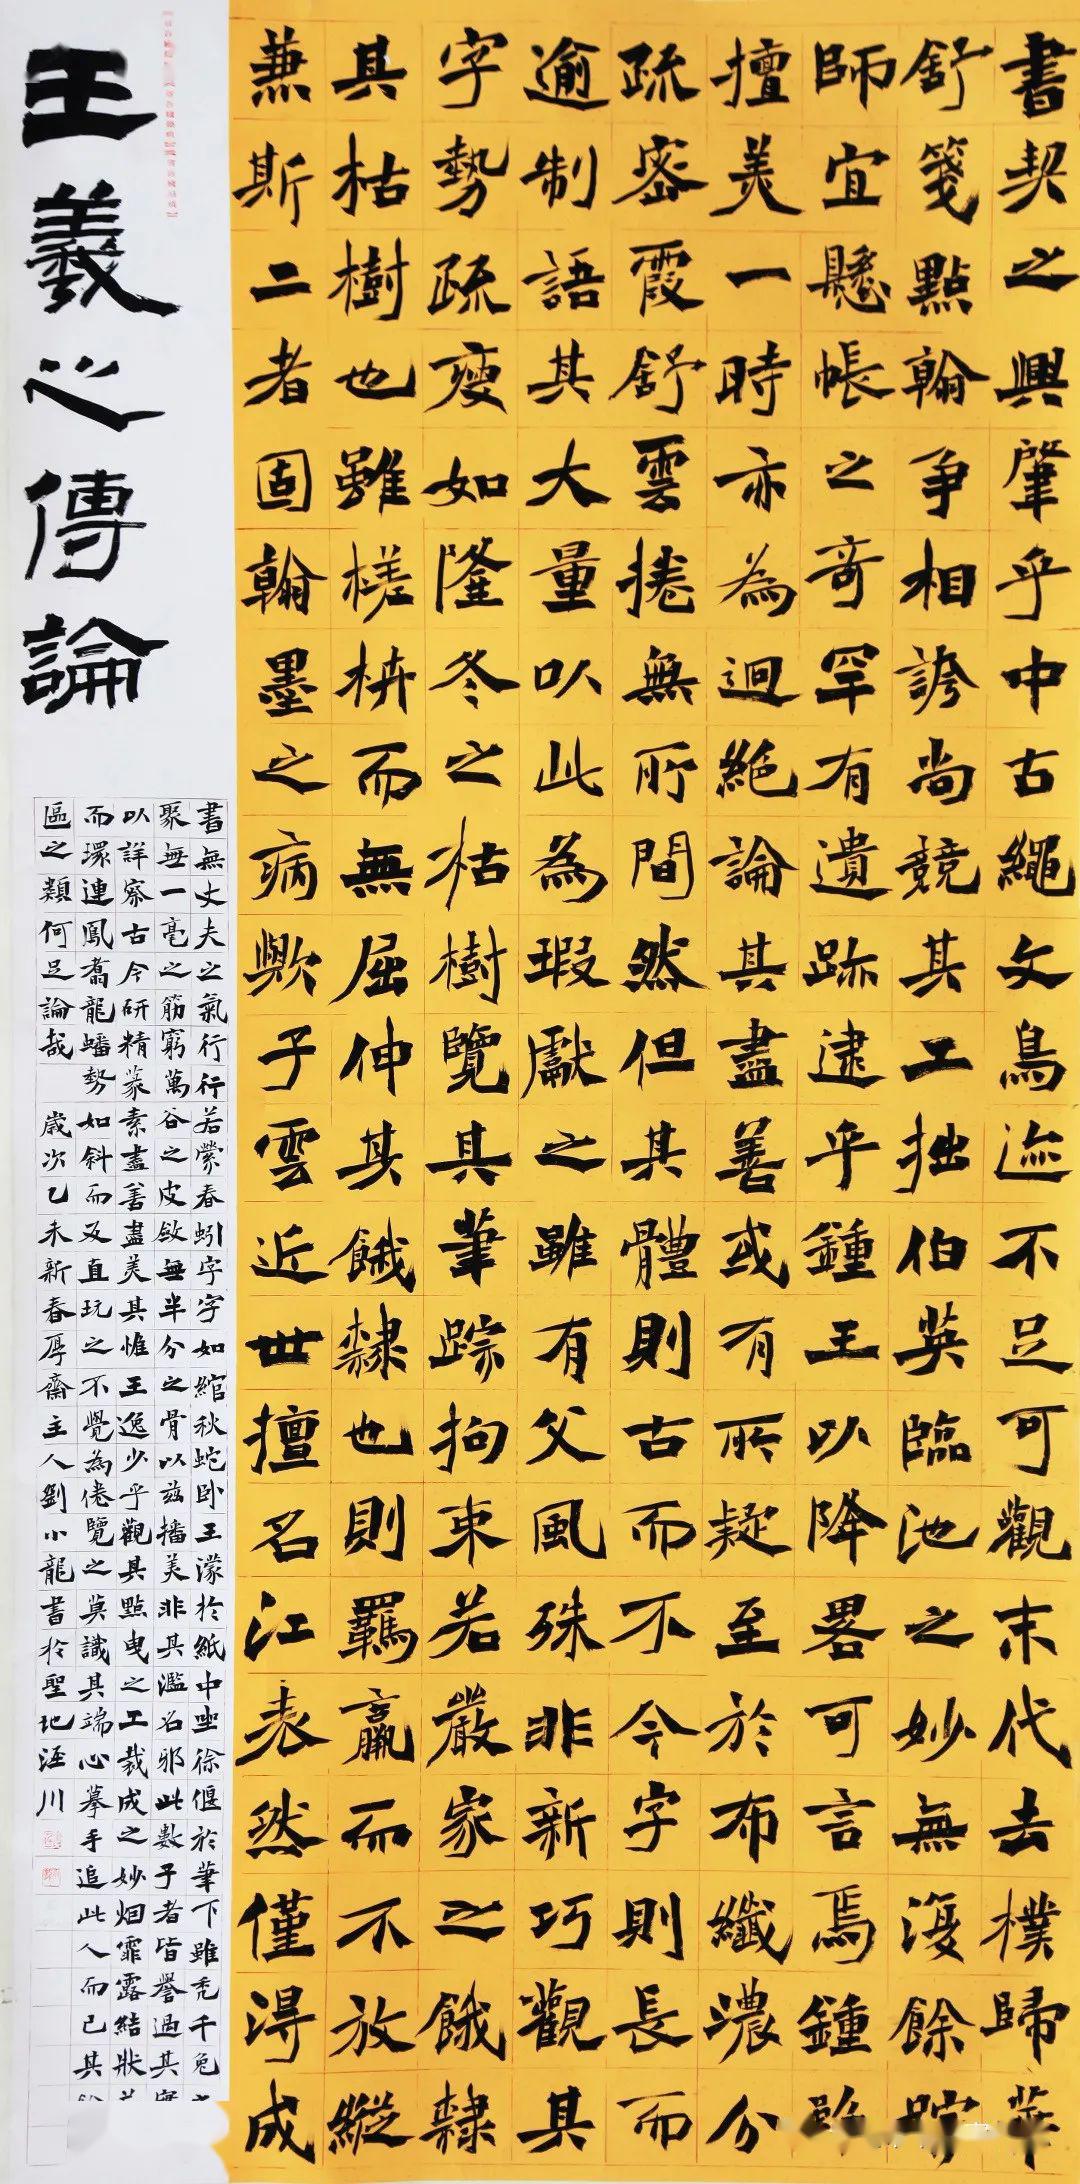 書契之興肇乎中古繩文鳥迹不足可觀末代去樸歸華
舒箋點翰爭相誇尚競其工拙伯英臨池之妙無復餘蹤
師宜懸帳之奇罕有遺跡逮乎鍾王以降畧可言焉鍾雖
擅美一時亦為迥絕論其盡善或有所疑至於布纖濃分
疏密霞舒雲捲無所間然但其體則古而不今字則長而
逾制語其大量以此為瑕獻之雖有父風殊非新巧觀其
字勢疏瘦如隆冬之枯樹覽其筆踪拘束若嚴家之餓隸
其枯樹也雖槎枿而無屈伸其餓隸也則羈羸而不放縱
兼斯二者固翰墨之病歟子雲近世擅名江表然僅得成
王羲之傳論
書無丈夫之氣行行若縈春蚓字字如綰秋蛇卧王濛於紙中坐徐偃於筆下雖禿千兔
聚無一毫之筋窮萬谷之皮斂無半分之骨以茲播美非其濫名邪此數子者皆譽過其
以詳察古今研精篆素盡善盡美其惟王逸少乎觀其點曳之工裁成之妙烟霏露結狀
而環連鳳翥龍蟠勢如斜而反直玩之不覺為倦覽之莫識其端心摹手追此人而已其
區之類何足論哉 歲次乙未新春厚齋主人劉小龍書於聖地涇川